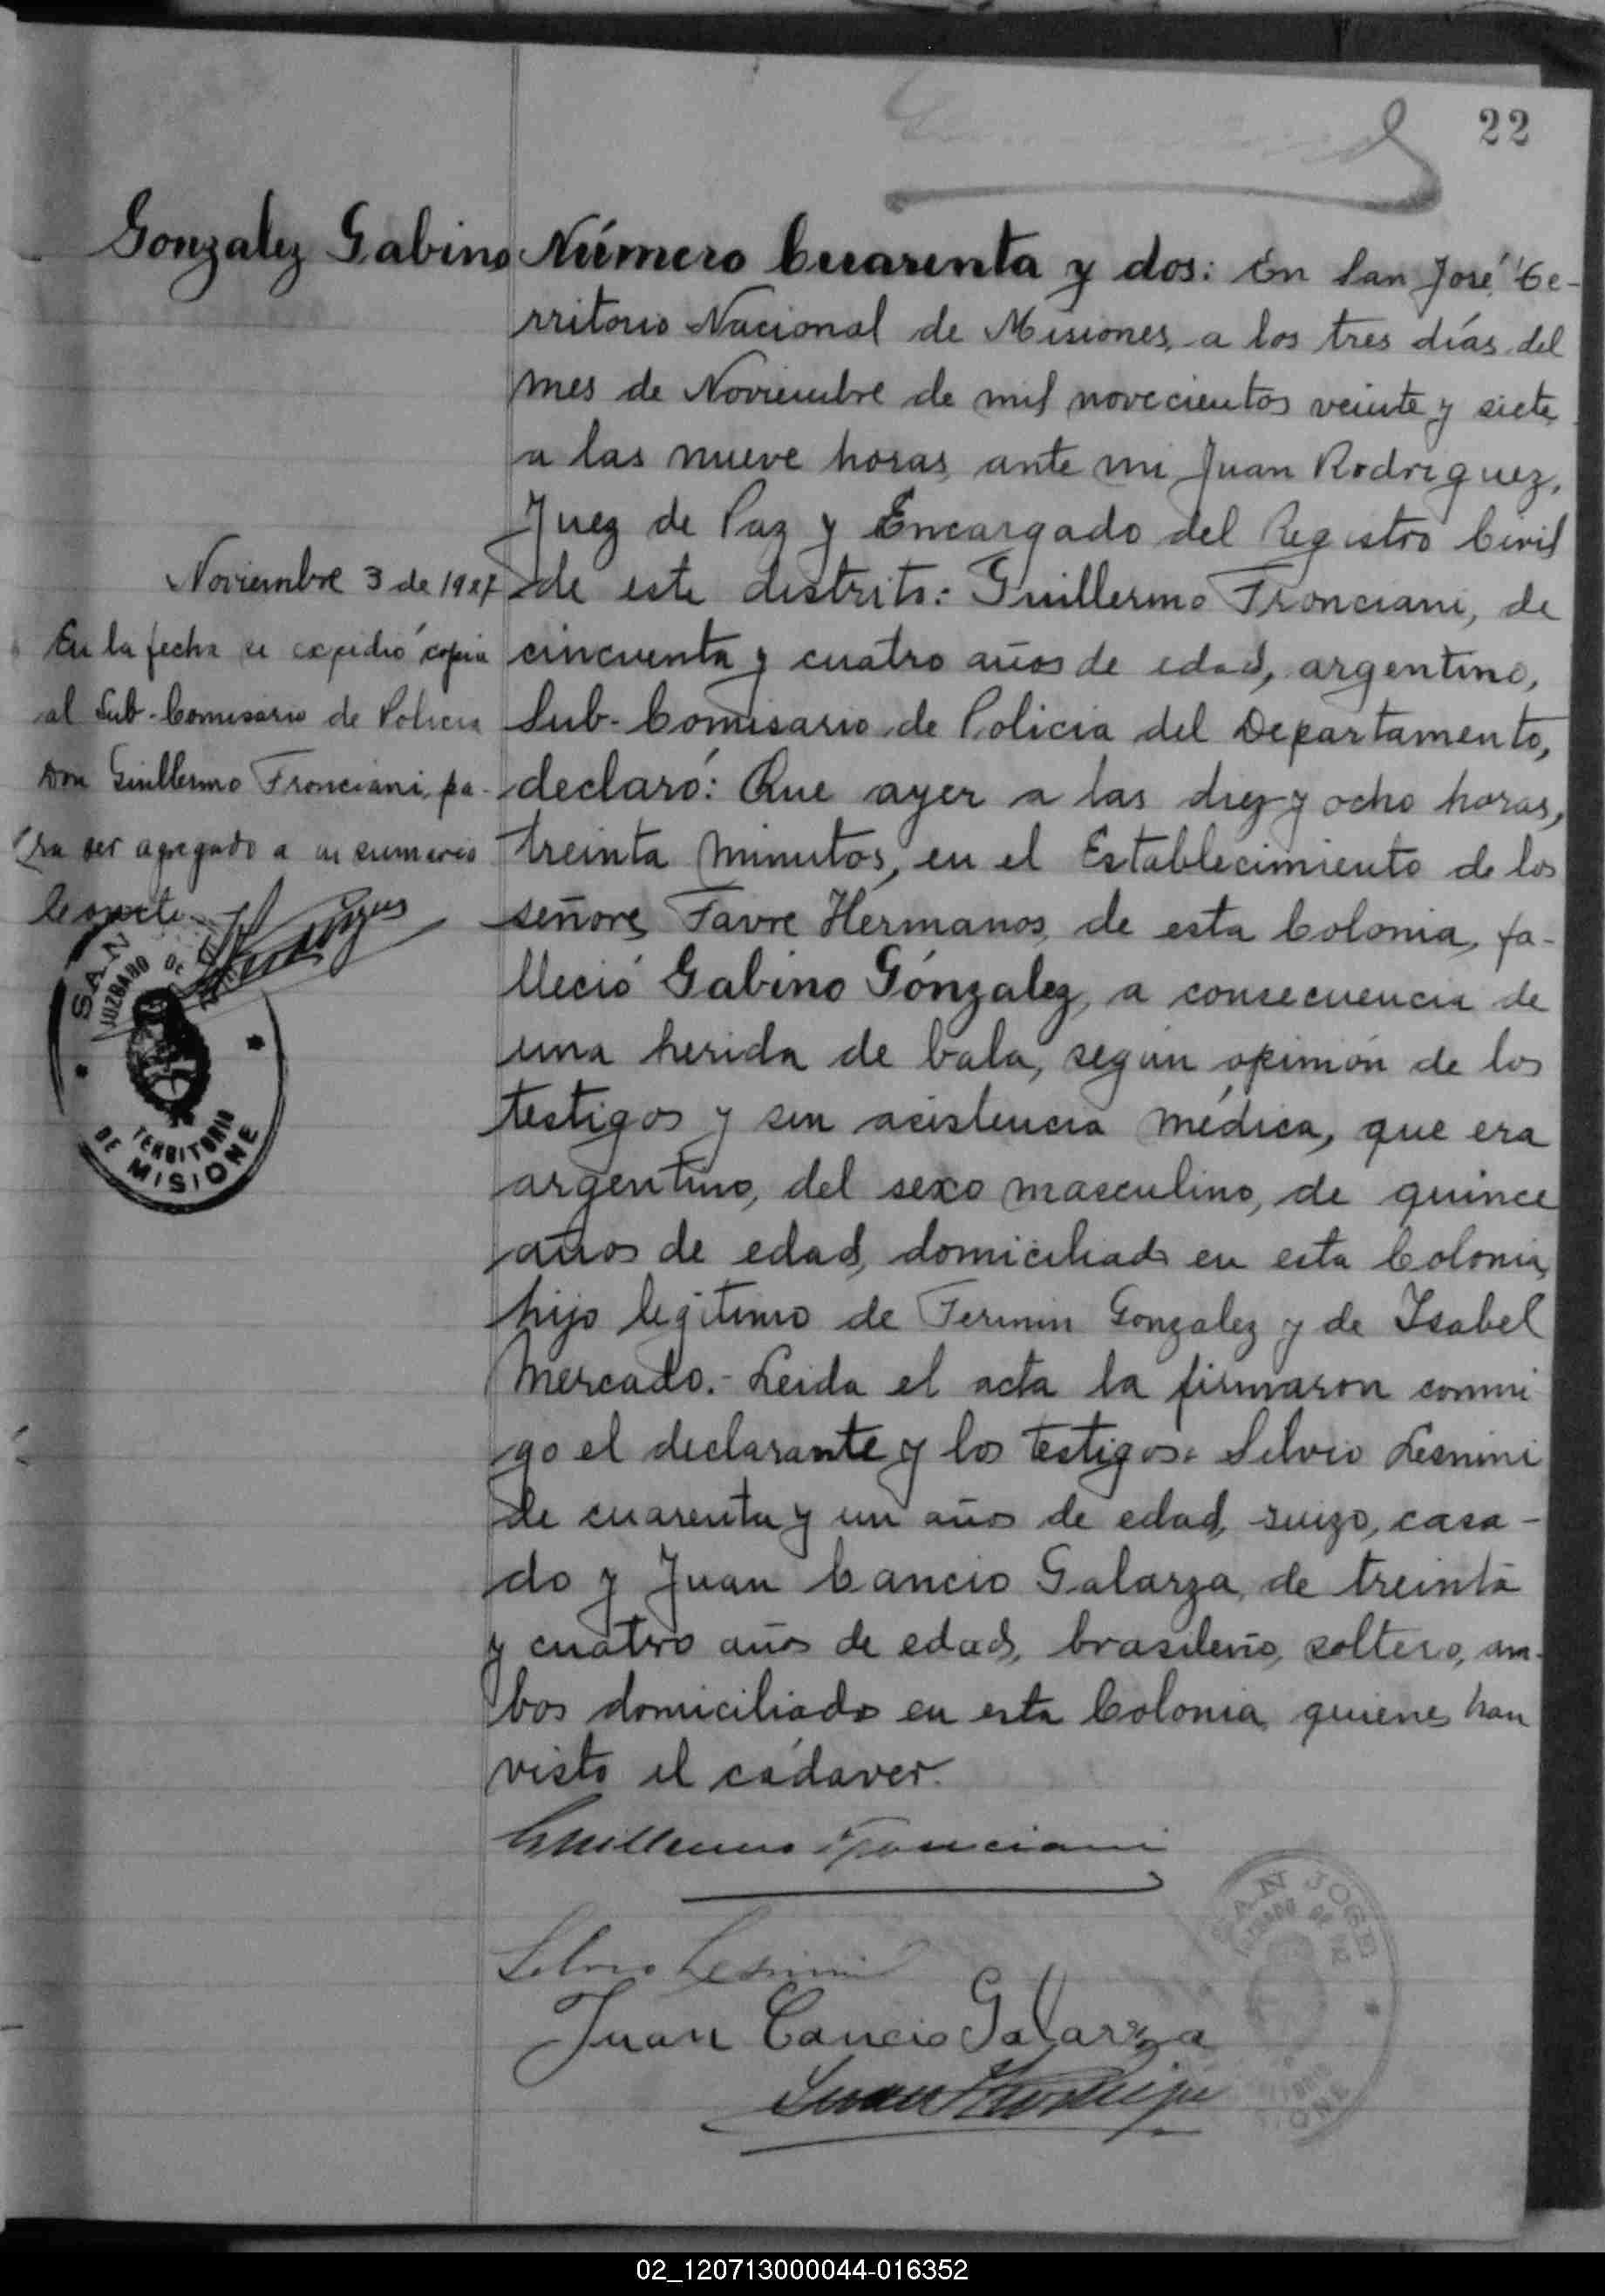 22
Gonzalez Gabino
Número Cuarenta y dos: En San José, Te-
rritorio Nacional de Misiones, a los tres días del
mes de Noviembre de mil novecientos veinte y siete,
a las nueve horas, ante mi Juan Rodriguez,
Juez de Paz y Encargado del Registro Civil
de este distrito: Guillermo Fronciani, de
cincuenta y cuatro años de edad, argentino,
Sub-Comisario de Policia del Departamento,
declaró: Que ayer a las diez y ocho horas,
treinta minutos, en el Establecimiento de los
señores Favre Hermanos, de esta Colonia, fa-
lleció Gabino Gónzalez, a consecuencia de
una herida de bala, según opinión de los
testigos y sin asistencia médica, que era
argentino, del sexo masculino, de quince
años de edad, domiciliado en esta Colonia,
hijo legítimo de Fermin Gonzalez y de Isabel
Mercado.- Leida el acta la firmaron conmi
go el declarante y los testigos: Silvio Lesnini
de cuarenta y un años de edad, suizo, casa-
do y Juan Cancio Galarza, de treinta
y cuatro años de edad, brasileño, soltero, am-
bos domiciliados en esta Colonia, quienes han
visto el cádaver.
Noviembre 3 de 1927
En la fecha se expidió copia
al Sub-Comisario de Policia
Don Guillermo Fronciani, pa-
ra ser agregado a un sumario
SAN
JUZGADO DE
TERRITORIO
DE MISIONE
Guillermo Fronciani
Silvio Lesnini
Juan Cancio Galarza
Juan Rodrigu
SAN JOSE
JUZGADO DE PAZ
02_120713000044-016352